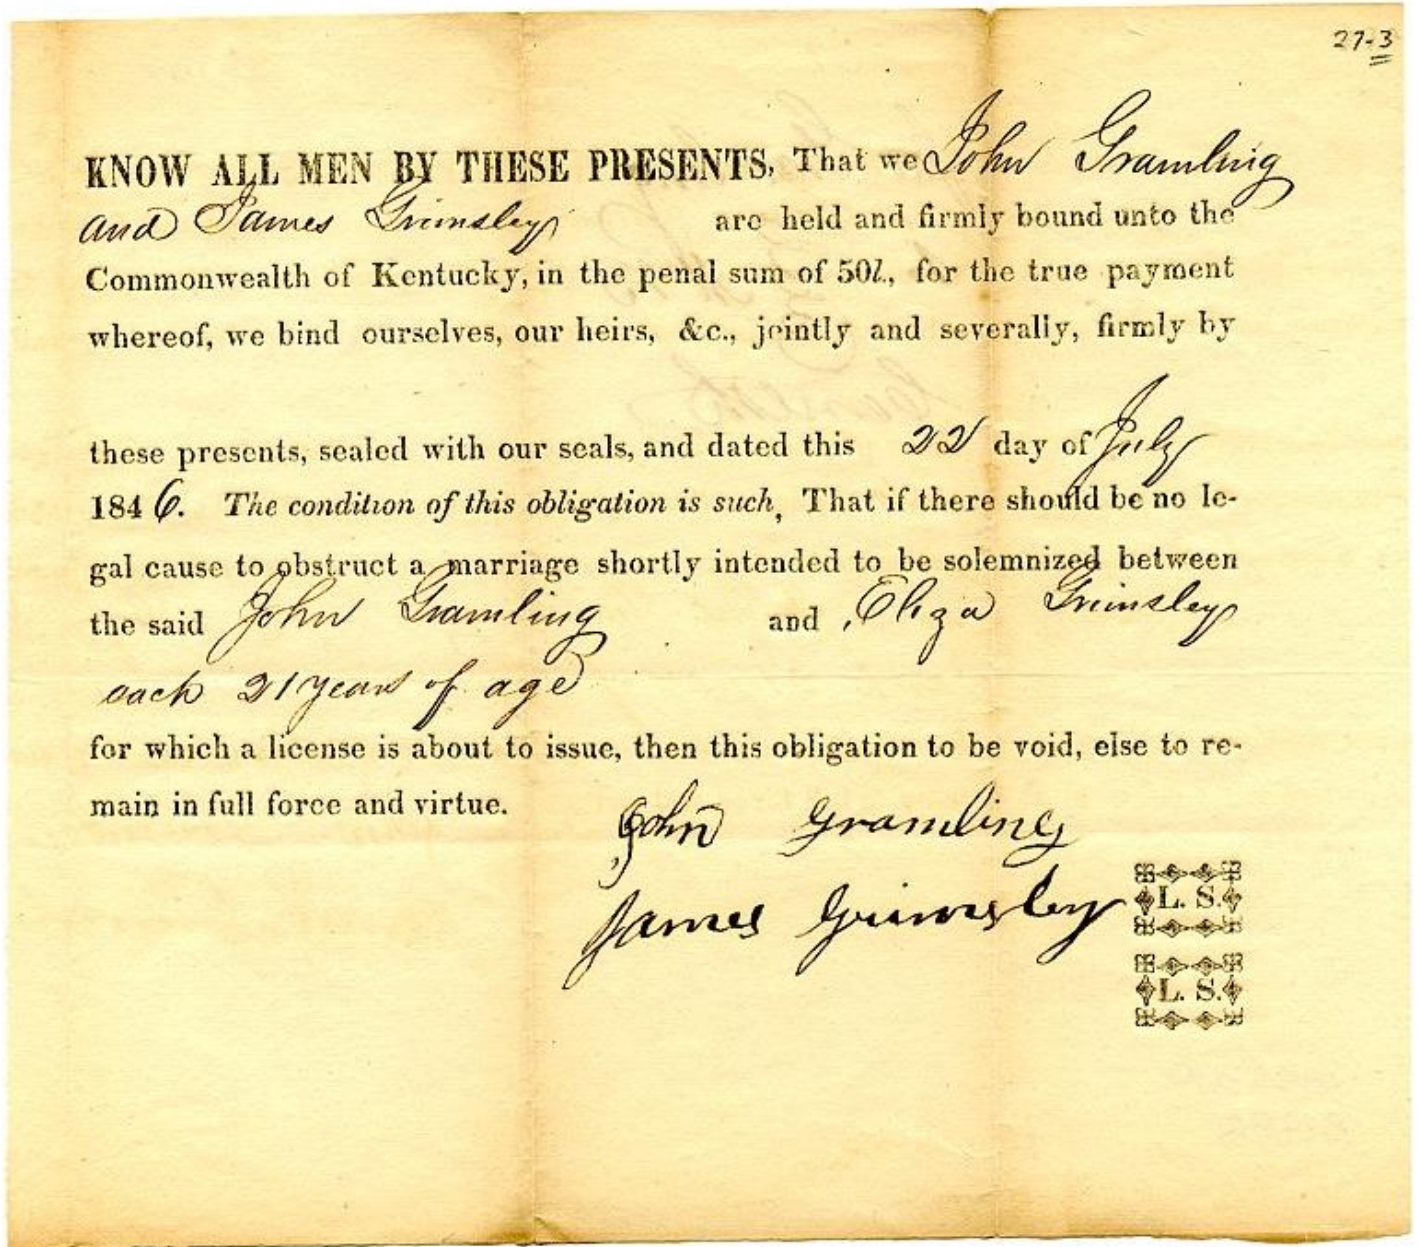 27-3
KNOW ALL MEN BY THESE PRESENTS, That we John Gramling
and James Grimsley are held and firmly bound unto the
Commonwealth of Kentucky, in the penal sum of 50l., for the true payment
whereof, we bind ourselves, our heirs, &c., jointly and severally, firmly by
these presents, sealed with our seals, and dated this 22 day of July
1846. The condition of this obligation is such, That if there should be no le-
gal cause to obstruct a marriage shortly intended to be solemnized between
the said John Gramling and Eliza Grimsley
each 21 years of age
for which a license is about to issue, then this obligation to be void, else to re-
main in full force and virtue.
John Gramling
James Grimsley L. S.
L. S.